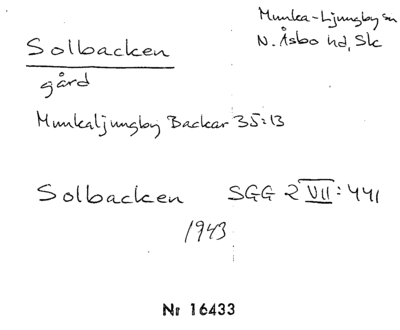 Munka-Ljungby sn
N. Åsbo hd, Sk
Solbacken
gård
Munkaljungby Backar 35:13
Solbacken SGG 2 VII: 441
1943
Nr 16433